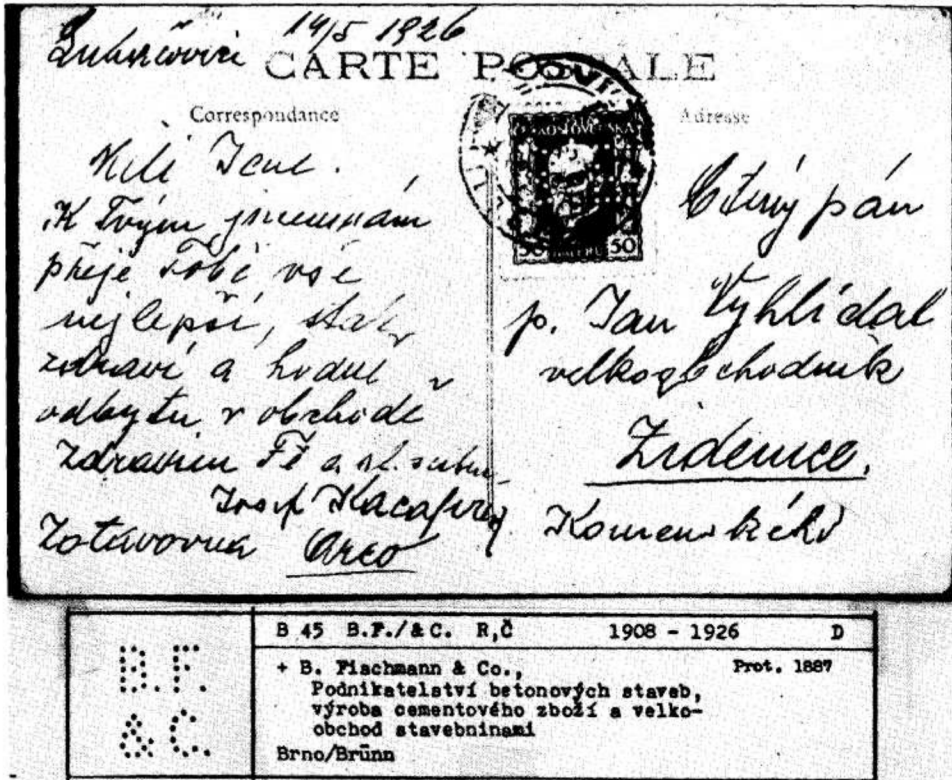 14/5 1926
CARTE POSTALE
Correspondance
Adresse
Milý Jene.
K Tvým
přeje Tobě vše
nejlepší, stálé
zdraví a hodně
odbytu v obchodě
Zdravím a
Josef
Zotavovna Arco
50 50
Ctěný pán
p. Jan Vyhlídal
velkoobchodník
Židenice.
B.F.
& C.
B 45 B.F./&C. R,Č 1908 - 1926 D
+ B. Fischmann & Co., Prot. 1887
Podnikatelství betonových staveb,
výroba cementového zboží a velko-
obchod stavebninami
Brno/Brünn